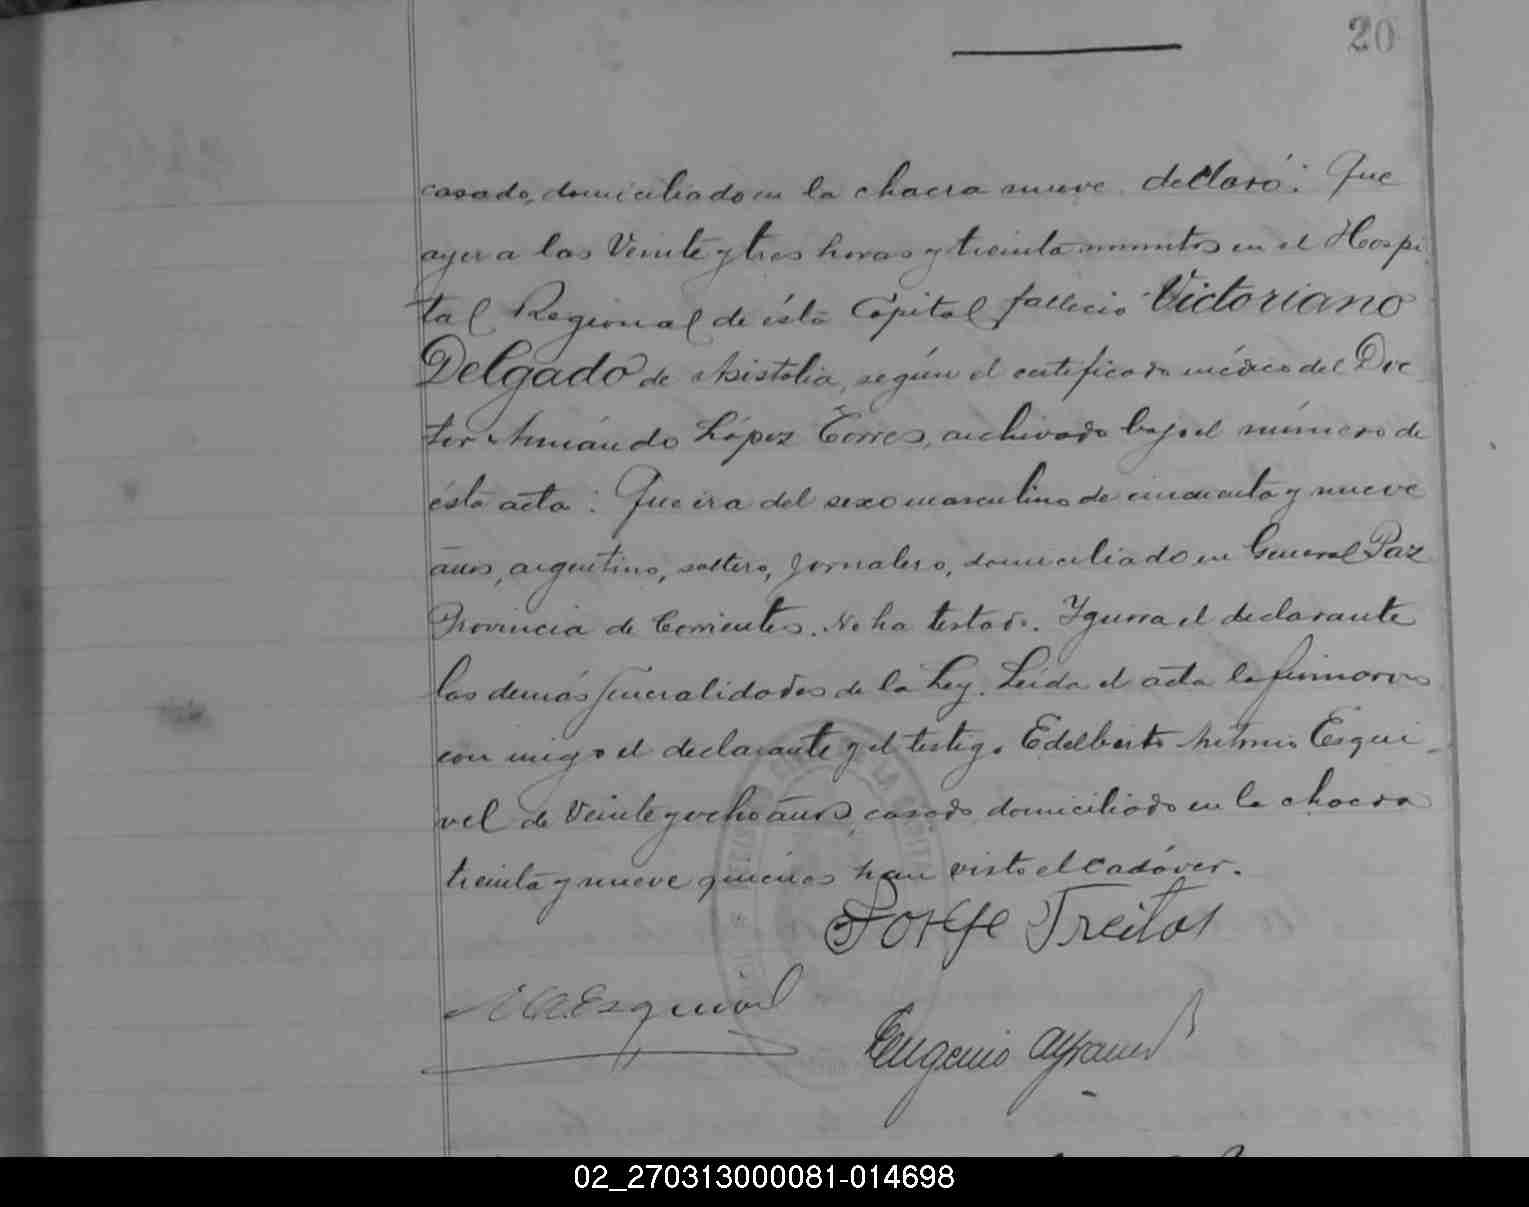 20
casado, domiciliado en la chacra nueve declaró: Que
ayer a las Veinte y tres horas y treinta minutos en el Hospi
tal Regional de ésta Capital fallecio Victoriano
Delgado de Asistolia, según el certificado médico del Doc
tor Armando López Torres, archivado bajo el número de
ésta acta: Que era del sexo masculino de cincuenta y nueve
años, argentino, soltero, jornalero, domiciliado en General Paz
Provincia de Corrientes. No ha testado. Ygnora el declarante
las demás generalidades de la Ley. Leída el acta la firmaron
con migo el declarante y el testigo Edelberto Antonio Esqui-
vel de Veinte y ocho años, casado domiciliado en la chacra
treinta y nueve quienes han visto el cadáver.
Jorge Freitas
Esquivel
Eugenio
02_270313000081-014698